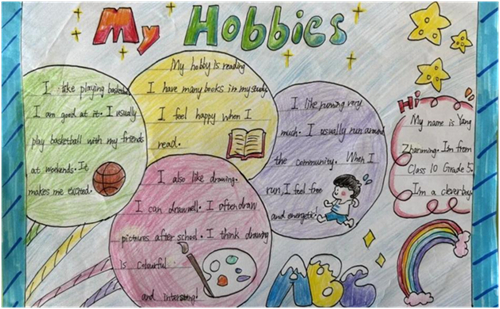 My Hobbies
I like playing basketball.
I am good at it. I usually
play basketball with my friends
at weekends. It
makes me excited.
My hobby is reading
I have many books in my study.
I feel happy when I
read.
I like running very
much. I usually run around
the community. When I
run, I feel free
and energetic!
I also like drawing.
I can draw well. I often draw
pictures after school. I think drawing
is colourful
and interesting!
Hi
My name is Yang
I'm from
Class 10 Grade 5.
I'm a clever boy.
ABC